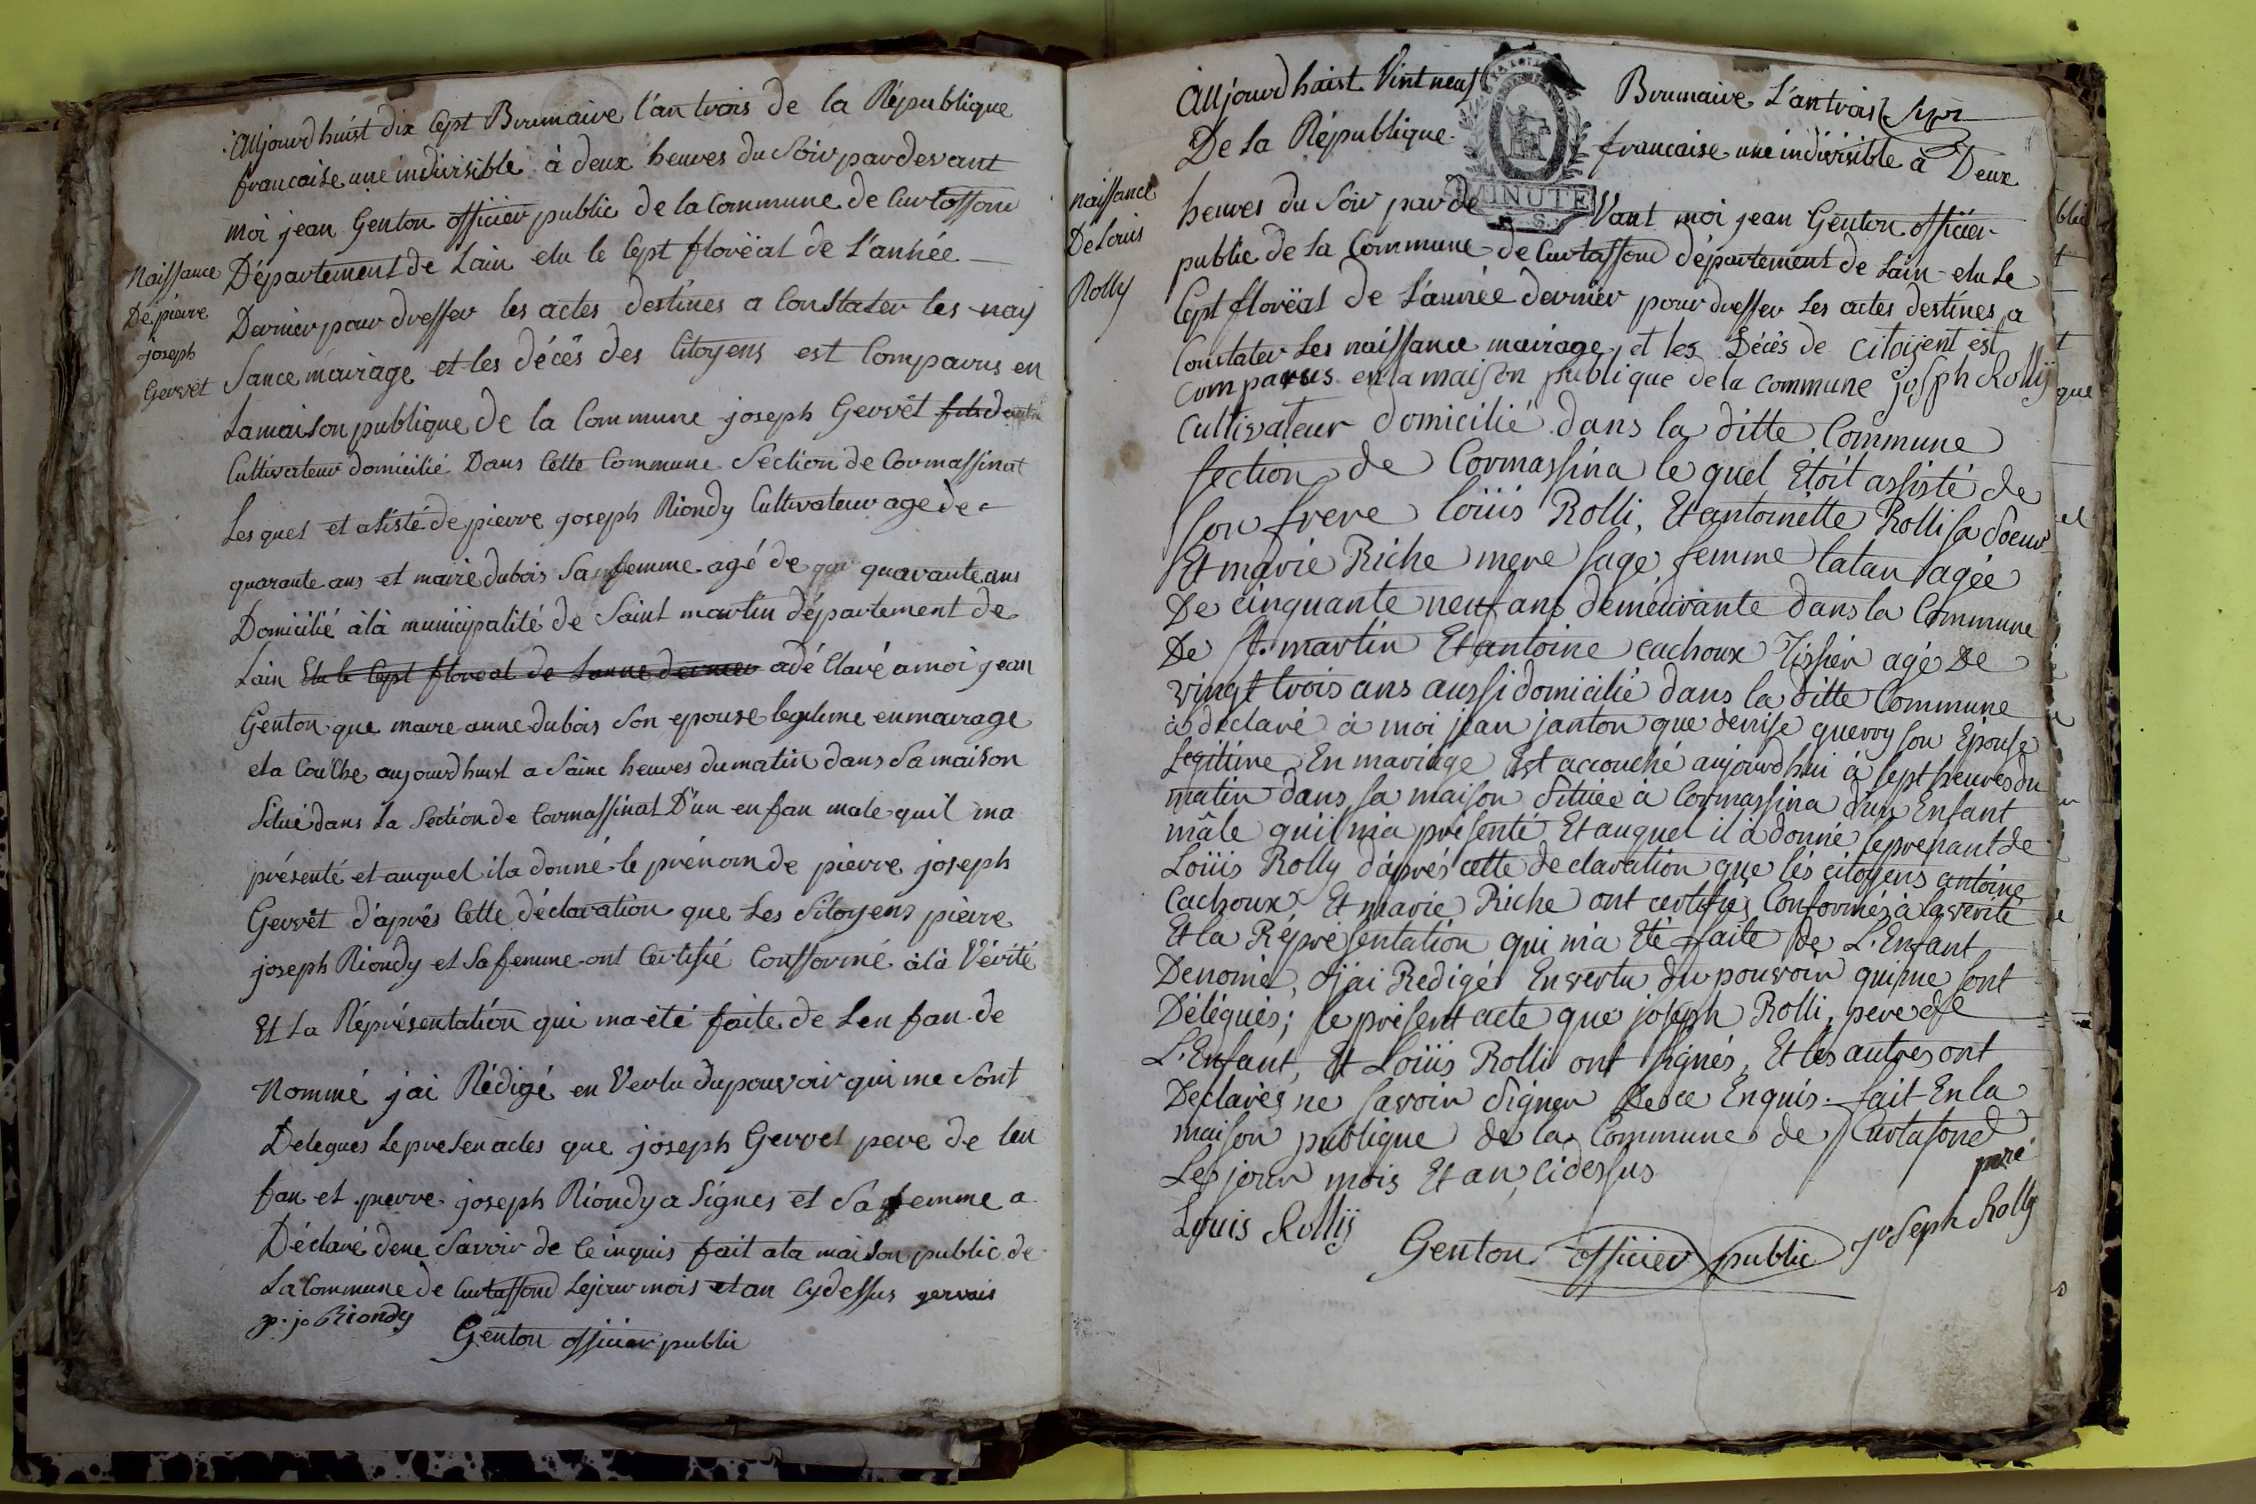 Aujourdhuist dix Sept Brumaire l'an trois de la République
francaise une indivisible à deux heures du Soir par devant
moi jean Genton officier public de la Commune de Curtaffond
Département de Lain elu le Sept floréal de L'année
Dernier pour dresser les actes destines a Constater les nais
Sance mairage et les décés des Citoyens est Comparus en
La maison publique de la Commune joseph Gervêt
Cultivateur domicilié Dans Cette Commune Section de Cormassinat
Les quel et asisté de pierre joseph Riondy Cultivateur age de
quarante ans et marie dubois Sa femme agé de quarante ans
Domicilié à là municipalité de Saint martin département de
Lain Elu le Sept floreal de Lanne dernier adé Claré a moi jean
Genton que marie anne dubois Son epouse legitime en mairage
et a Couche aujourdhuist a Sainc heures du matin dans Sa maison
Situé dans La Section de Cormassinat D'un en fan male quil ma
présenté et auquel ila donné le prénom de pierre joseph
Gervêt d'après Cette déclaration que Les Sitoyens pierre
joseph Riondy et Sa femme ont Certifié Confformé à là Vérité
Et La Réprésentation qui ma été faite de Len fan de
Nommé jai Rédigé en Vertu du pouvoir qui me Sont
Delegues Le presen actes que joseph Gervet pere de len
fan et pierre joseph Riondy a Signes et Sa femme a
Déclaré de ne Savoir de Ce inquis fait a la maison public de
La Commune de Curtaffond Le jour mois et an Cy dessus gervais
p. jo Riondy
Genton officier public
Naissance
De pierre
joseph
Gervêt
Aujourdhuist Vint neuf Brumaire L'an trois
De la République francaise une indivisible à Deux
MINUTE
heures du Soir par de Vant moi jean Genton officier
public de la Commune de Curtaffond département de Lain elu Le
Sept floréal de L'année dernier pour dresser Les actes destines a
Constater Les naissance mairage, et les Décés de Citoijent est
Comparus en la maison publique de la commune joseph Rollÿ
Cultivateur domicilié dans la ditte Commune
Section de Cormassina le quel Etoit assisté de
Son frere Loüis Rolli, Et antoinette Rolli Sa Soeur
Et marie Riche mere sage femme agée
De cinquante neuf ans demeurante dans la Commune
De St. martin Et antoine cachoux Tissier agé De
vingt trois ans aussi domicilié dans la ditte Commune
à declaré à moi jean janton que denise querry son Epouse
legitime En mariage Est accouché aujourdhui à sept heures du
matin dans sa maison Située à Cormassina d'un Enfant
mâle qu'il m'a présenté Et auquel il à donné le prenant de
Loüis Rolly d'après cette declaration que lés citoyens antoine
Cachoux Et marie Riche ont certifiés Conformés à la vérité
Et la Représentation qui m'a Eté faite de L'Enfant
Denomé, j'ai Redigé En vertu du pouvoir qui me sont
Délégués; le présent acte que joseph Rolli, pere de
L'Enfant, Et Loüis Rolli ont signés, Et les autres ont
Déclarés ne savoir Signer De ce Enquis. fait En la
maison publique de la Commune de Curtafond
Les jour mois Et an, cidessus
Louis Rollÿ
Genton officier public
joseph Rolly
naissance
De Louis
Rolly